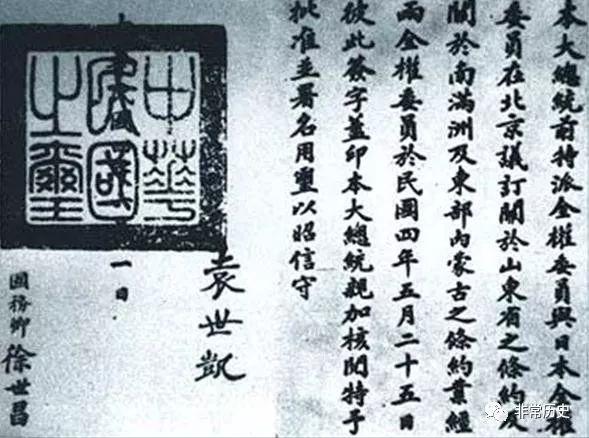 本大總統前特派全權委員與日本全權
委員在北京議訂關於山東省之條約及
關於南滿洲及東部內蒙古之條約業經
兩全權委員於民國四年五月二十五日
彼此簽字蓋印本大總統親加核閱特予
批准並署名用璽以昭信守
袁世凱
中華
民國
之璽
一日
國務卿 徐世昌
非常历史